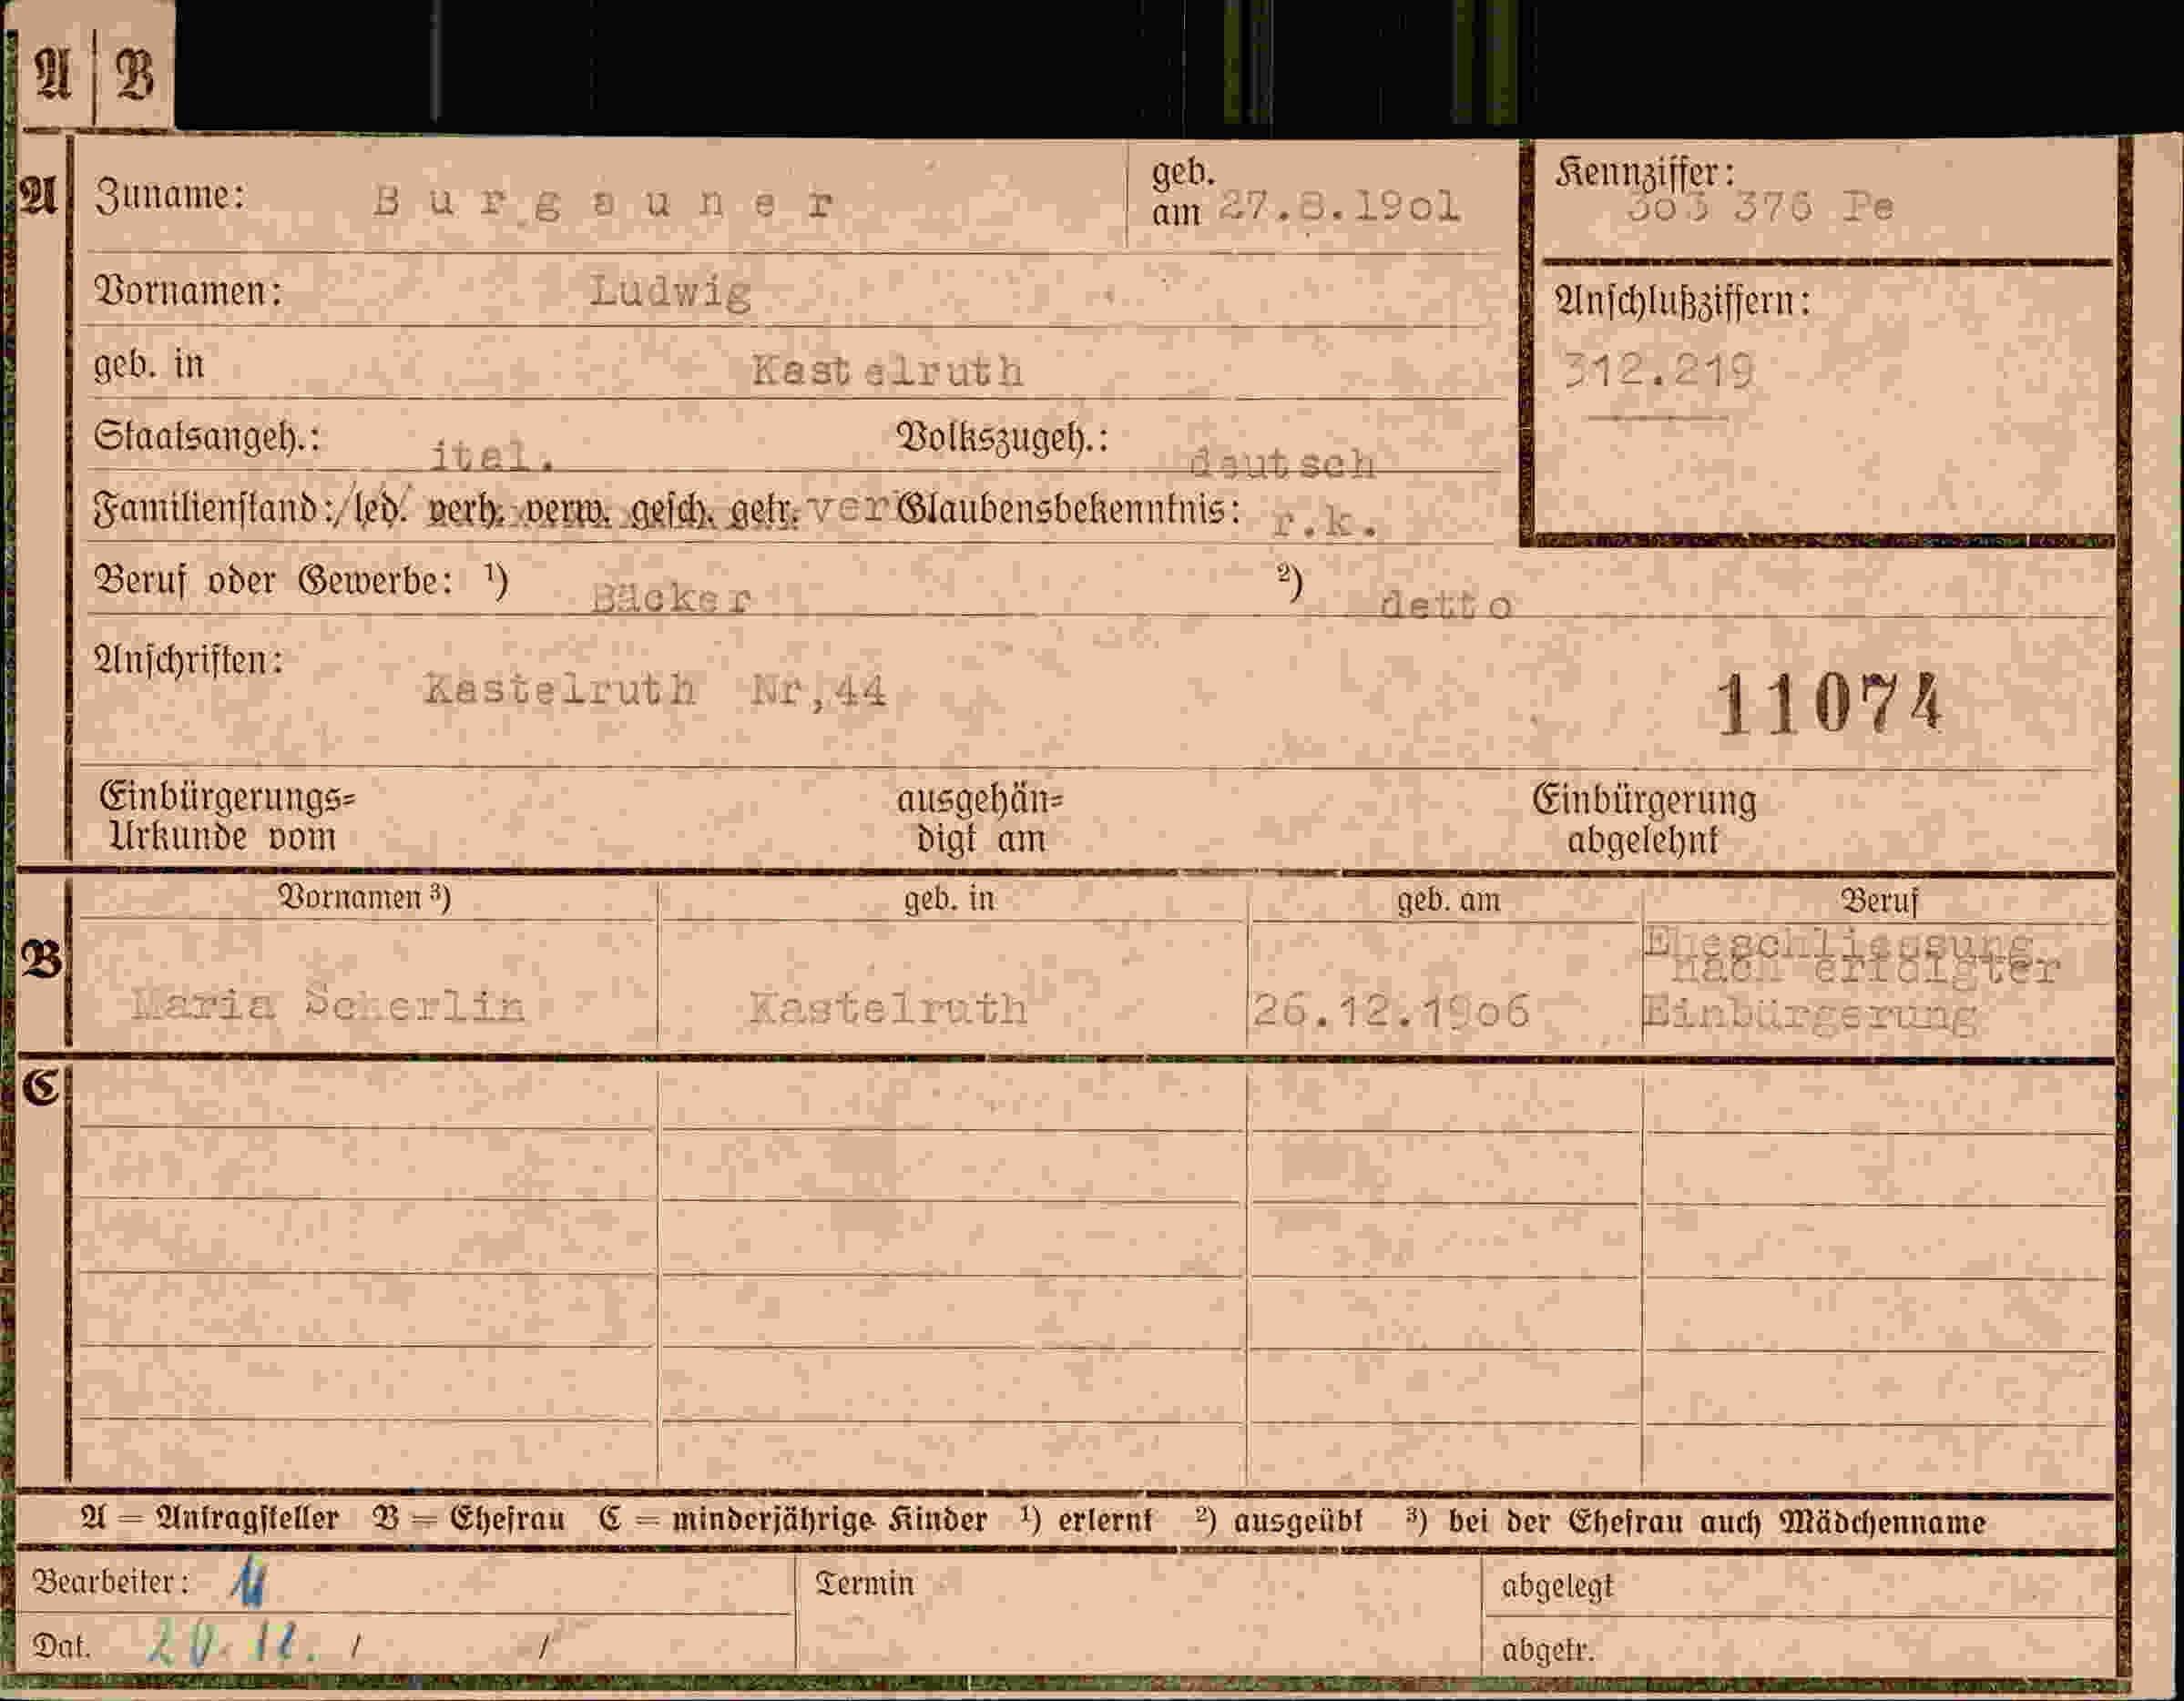 A | B
A
Zuname: Burgauner geb. am 27.8.1901
Kennziffer: 303 376 Pe
Vornamen: Ludwig
Anschlußziffern:
312.219
geb. in Kastelruth
Staatsangeh.: ital. Volkszugeh.: deutsch
Familienstand: led. verh. verw. gesch. getr. ver Glaubensbekenntnis: r.k.
Beruf oder Gewerbe: ¹) Bäcker ²) detto
Anschriften: Kastelruth Nr,44
11074
Einbürgerungs= Urkunde vom ausgehän= digt am Einbürgerung abgelehnt
B
Vornamen ³) geb. in geb. am Beruf
Maria Scherlin Kastelruth 26.12.1906 Eheschliessung nach erfolgter Einbürgerung
C
A = Antragsteller B = Ehefrau C = minderjährige Kinder ¹) erlernt ²) ausgeübt ³) bei der Ehefrau auch Mädchenname
Bearbeiter: Termin abgelegt
Dat. 20.12. / / abgetr.